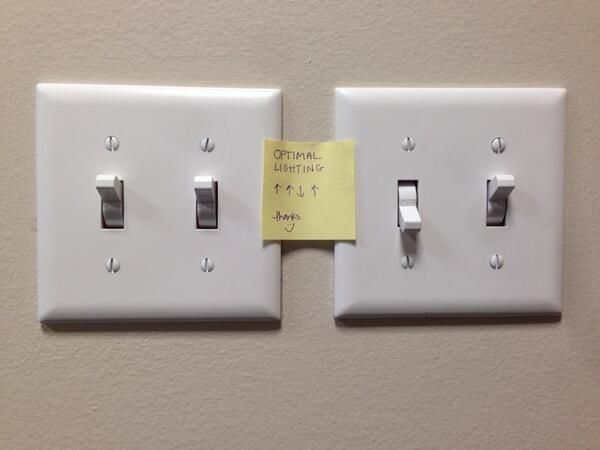 OPTIMAL
LIGHTING
↑↑↓↑
thanks
:)